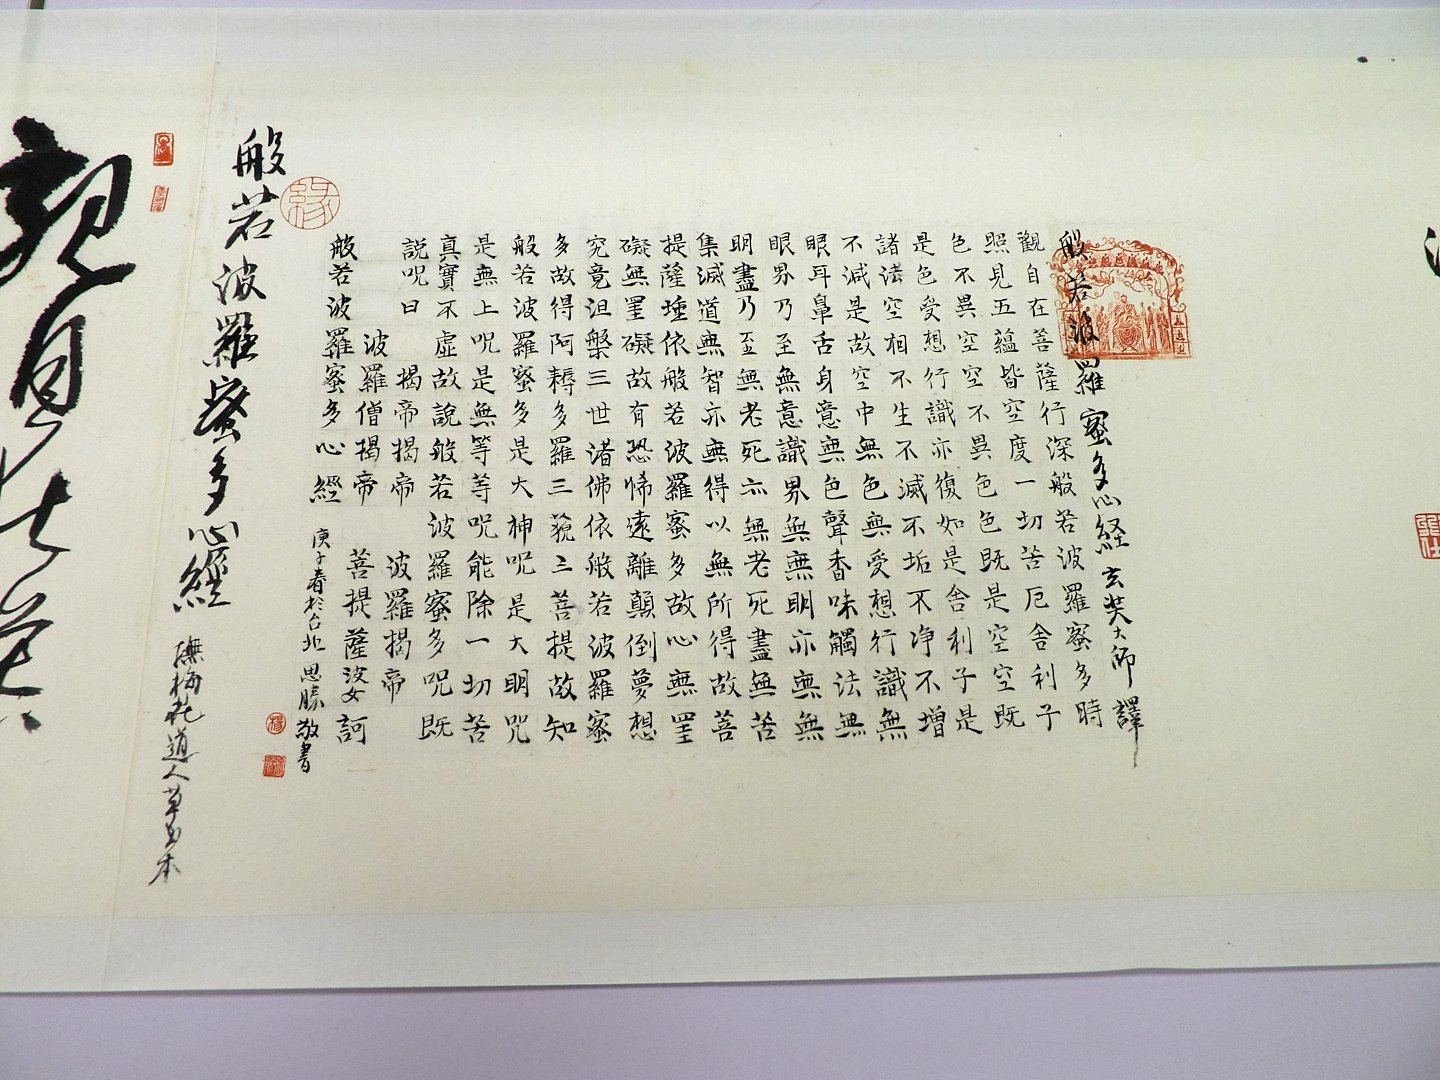 般若波羅蜜多心経 玄奘大師譯
觀自在菩薩行深般若波羅蜜多時
照見五蘊皆空度一切苦厄舍利子
色不異空空不異色色既是空空既
是色受想行識亦復如是舍利子是
諸法空相不生不滅不垢不净不增
不減是故空中無色無受想行識無
眼耳鼻舌身意無色聲香味觸法無
眼界乃至無意識界無無明亦無無
明盡乃至無老死亦無老死盡無苦
集滅道無智亦無得以無所得故菩
提薩埵依般若波羅蜜多故心無罣
礙無罣礙故有恐怖遠離顛倒夢想
究竟涅槃三世诸佛依般若波羅蜜
多故得阿耨多羅三藐三菩提故知
般若波羅蜜多是大神呪是大明咒
是無上呪是無等等呪能除一切苦
真實不虛故說般若波羅蜜多呪既
說呪曰 揭帝揭帝 波羅揭帝
波羅僧揭帝 菩提薩婆訶
般若波羅蜜多心經
庚子春於台北 思勝敬書
緣
般若波羅蜜多心經 撫梅花道人草書本
觀自在菩